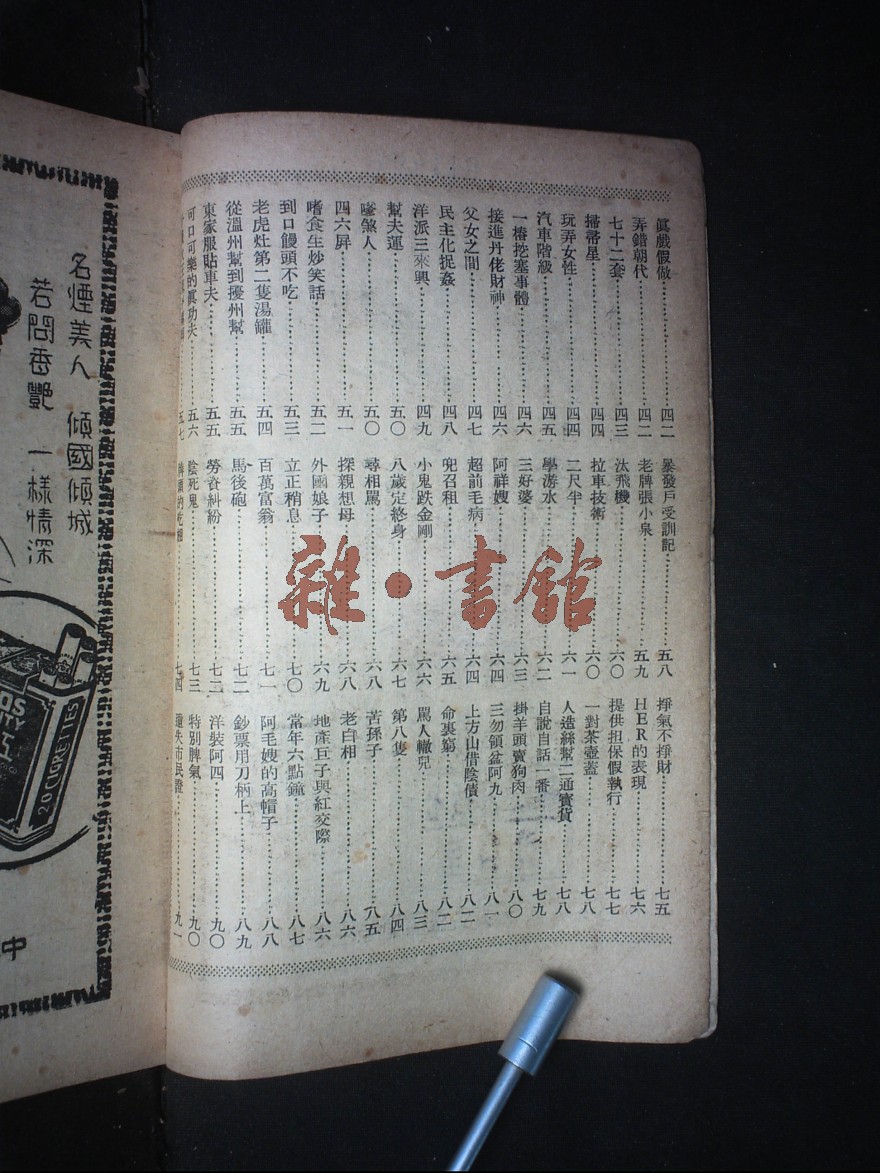 眞戲假做⋯⋯四二
弄錯朝代⋯⋯四二
七十二套⋯⋯四三
掃帚星⋯⋯四四
玩弄女性⋯⋯四四
汽車階級⋯⋯四五
一樁挖塞事體⋯⋯四六
接進丹佬財神⋯⋯四六
父女之間⋯⋯四七
民主化捉姦⋯⋯四八
洋派三來興⋯⋯四九
幫夫運⋯⋯五〇
嗲煞人⋯⋯五〇
四六屏⋯⋯五一
嗜食生炒笑話⋯⋯五二
到口饅頭不吃⋯⋯五三
老虎灶第二隻湯罐⋯⋯五四
從溫州幫到擾州幫⋯⋯五五
東家服貼車夫⋯⋯五五
可口可樂的眞功夫⋯⋯五六
五七
暴發戶受訓記⋯⋯五八
老牌張小泉⋯⋯五九
汰飛機⋯⋯六〇
拉車技術⋯⋯六〇
二尺半⋯⋯六一
學游水⋯⋯六二
三好婆⋯⋯六三
阿祥嫂⋯⋯六四
超前毛病⋯⋯六四
兜召租⋯⋯六五
小鬼跌金剛⋯⋯六六
八歲定終身⋯⋯六七
尋相罵⋯⋯六八
探親想母⋯⋯六八
外國娘子⋯⋯六九
立正稍息⋯⋯七〇
百萬富翁⋯⋯七一
馬後砲⋯⋯七二
勞資糾紛⋯⋯七二
陰死鬼⋯⋯七三
七四
掙氣不掙財⋯⋯七五
HER的表現⋯⋯七六
提供担保假執行⋯⋯七七
一對茶壺蓋⋯⋯七八
人造絲幫二通賓貨⋯⋯七八
自說自話一番⋯⋯七九
掛羊頭賣狗肉⋯⋯八〇
三勿領盆阿九⋯⋯八一
上方山借陰債⋯⋯八二
命裏窮⋯⋯八二
罵人轍兒⋯⋯八三
第八隻⋯⋯八四
苦孫子⋯⋯八五
老白相⋯⋯八六
地產巨子與紅交際⋯⋯八六
當年六點鐘⋯⋯八七
阿毛嫂的高帽子⋯⋯八八
鈔票用刀柄上⋯⋯八九
洋裝阿四⋯⋯九〇
特別脾氣⋯⋯九〇
遺失市民證⋯⋯九一
名煙美人 傾國傾城
若問香艷 一樣情深
20 CIGARETTES
中
雜·書館